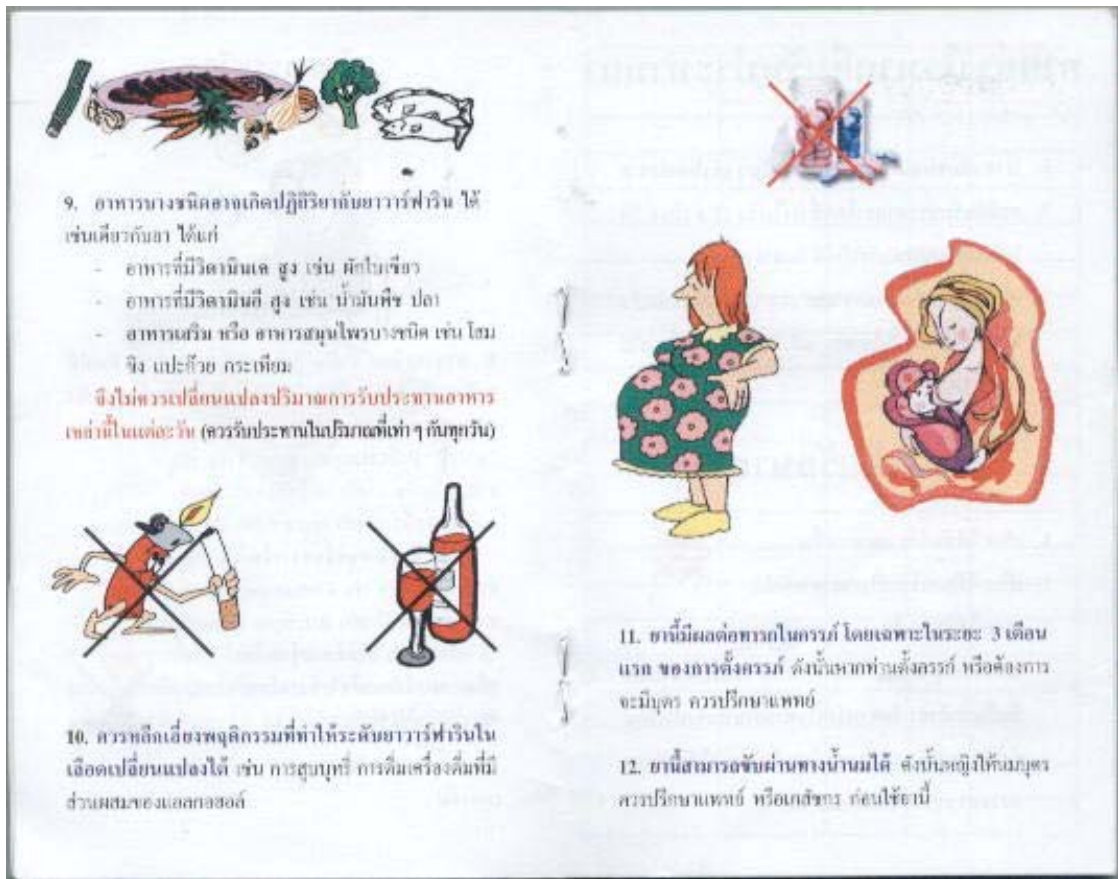 9. อาหารบางชนิดอาจเกิดปฏิกิริยากับยาวาร์ฟาริน ได้
เช่นเดียวกับยา ได้แก่
- อาหารที่มีวิตามินเค สูง เช่น ผักใบเขียว
- อาหารที่มีวิตามินอี สูง เช่น น้ำมันพืช ปลา
- อาหารเสริม หรือ อาหารสมุนไพรบางชนิด เช่น โสม
ขิง แปะก๊วย กระเทียม
จึงไม่ควรเปลี่ยนแปลงปริมาณการรับประทานอาหาร
เหล่านี้ในแต่ละวัน (ควรรับประทานในปริมาณที่เท่า ๆ กันทุกวัน)
10. ควรหลีกเลี่ยงพฤติกรรมที่ทำให้ระดับยาวาร์ฟารินใน
เลือดเปลี่ยนแปลงได้ เช่น การสูบบุหรี่ การดื่มเครื่องดื่มที่มี
ส่วนผสมของแอลกอฮอล์
11. ยานี้มีผลต่อทารกในครรภ์ โดยเฉพาะในระยะ 3 เดือน
แรก ของการตั้งครรภ์ ดังนั้นหากท่านตั้งครรภ์ หรือต้องการ
จะมีบุตร ควรปรึกษาแพทย์
12. ยานี้สามารถขับผ่านทางน้ำนมได้ ดังนั้นหญิงให้นมบุตร
ควรปรึกษาแพทย์ หรือเภสัชกร ก่อนใช้ยานี้